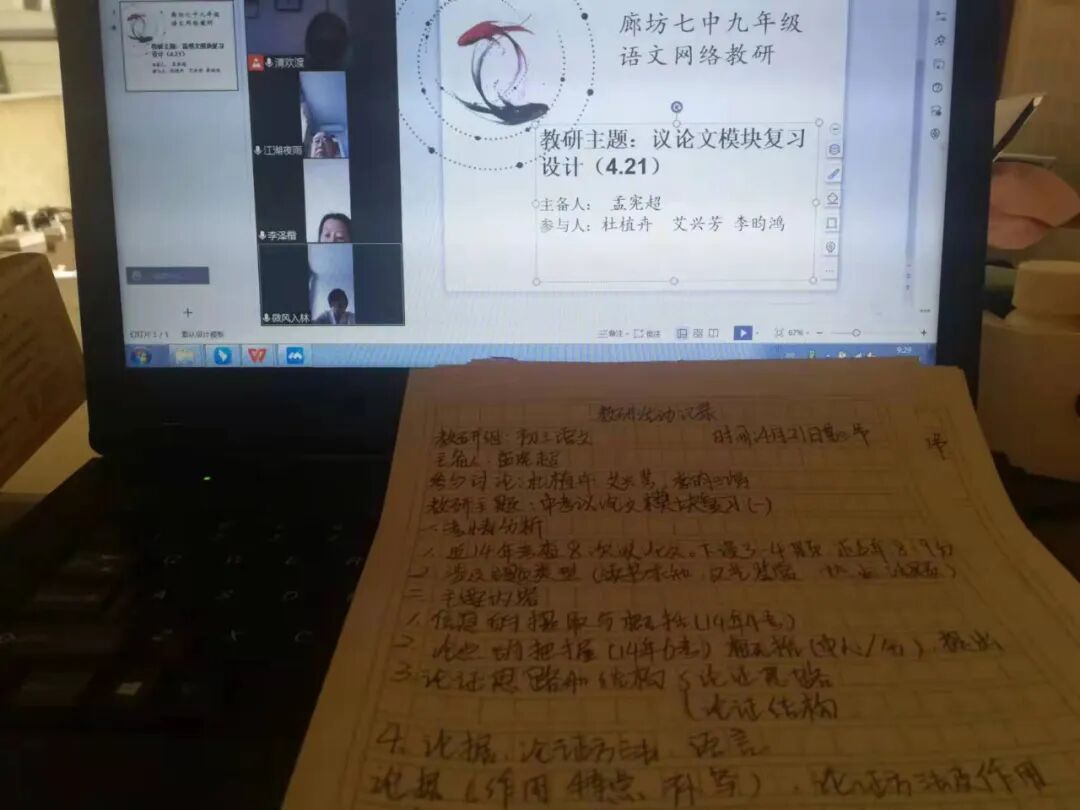 教研主题：议论文模块复习
设计（4.21）
清欢渡
江湖夜雨
李泽楷
微风入林
廊坊七中九年级
语文网络教研
教研主题：议论文模块复习
设计（4.21）
主备人： 孟宪超
参与人：杜植卉 艾兴芳 李昀鸿
备注
批注
67%
9:29
教研活动记录
教研组：初三语文
时间：4月21日
主备人：孟宪超
参与讨论：杜植卉 艾兴芳
教研主题：中考议论文模块复习(一)
一.考情分析
1. 近14年考查8次议论文。下设3-4题
2. 涉及
二.主要内容
1. 信息的提取与概括(14年4考)
2. 论点的把握(14年6考)
3. 论证思路和结构 { 论证思路
论证结构
4. 论据、论证方法、语言
论据(作用 特点 补写)、论证方法及作用